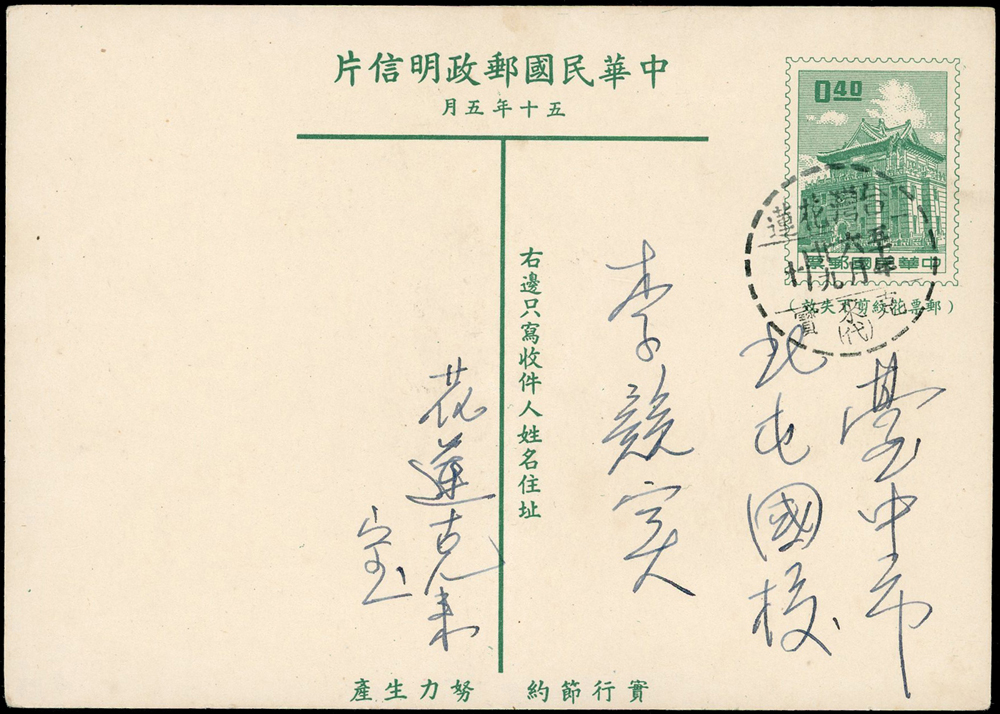 中華民國郵政明信片
五十年五月
0.40
中華民國郵票
(郵票花紋剪下失效)
台灣花蓮
克來寶
(代)
臺中市
北屯國校
李競
右邊只寫收件人姓名住址
花蓮克來
宝
實行節約 努力生產